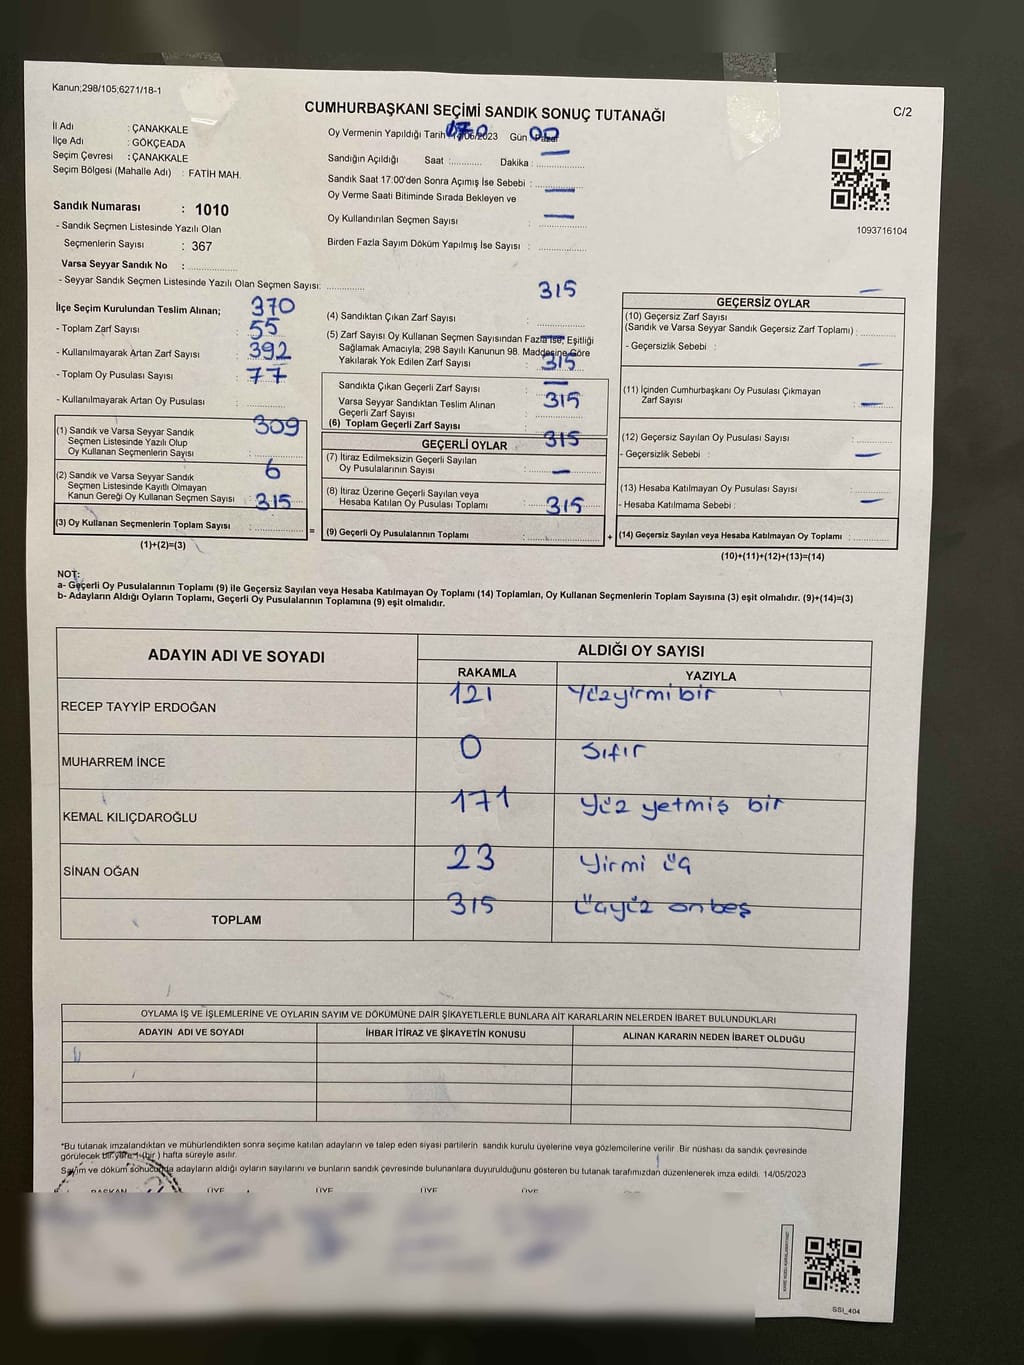 Kanun;298/105;6271/18-1
C/2
CUMHURBAŞKANI SEÇİMİ SANDIK SONUÇ TUTANAĞI
İl Adı : ÇANAKKALE
İlçe Adı : GÖKÇEADA
Seçim Çevresi : ÇANAKKALE
Seçim Bölgesi (Mahalle Adı) : FATİH MAH.
Sandık Numarası : 1010
- Sandık Seçmen Listesinde Yazılı Olan
Seçmenlerin Sayısı : 367
Varsa Seyyar Sandık No :
- Seyyar Sandık Seçmen Listesinde Yazılı Olan Seçmen Sayısı:
Oy Vermenin Yapıldığı Tarih /2023 Gün
Sandığın Açıldığı Saat : Dakika :
Sandık Saat 17:00'den Sonra Açımış İse Sebebi : —
Oy Verme Saati Bitiminde Sırada Bekleyen ve —
Oy Kullandırılan Seçmen Sayısı : —
Birden Fazla Sayım Döküm Yapılmış İse Sayısı :
1093716104
İlçe Seçim Kurulundan Teslim Alınan; 370
- Toplam Zarf Sayısı : 55
- Kullanılmayarak Artan Zarf Sayısı : 392
- Toplam Oy Pusulası Sayısı : 77
- Kullanılmayarak Artan Oy Pusulası :
(1) Sandık ve Varsa Seyyar Sandık 309
Seçmen Listesinde Yazılı Olup
Oy Kullanan Seçmenlerin Sayısı :
(2) Sandık ve Varsa Seyyar Sandık 6
Seçmen Listesinde Kayıtlı Olmayan
Kanun Gereği Oy Kullanan Seçmen Sayısı : 315
(3) Oy Kullanan Seçmenlerin Toplam Sayısı : =
(1)+(2)=(3)
315
(4) Sandıktan Çıkan Zarf Sayısı :
(5) Zarf Sayısı Oy Kullanan Seçmen Sayısından Fazla İse, Eşitliği
Sağlamak Amacıyla, 298 Sayılı Kanunun 98. Maddesine Göre
Yakılarak Yok Edilen Zarf Sayısı : 315
Sandıkta Çıkan Geçerli Zarf Sayısı : —
Varsa Seyyar Sandıktan Teslim Alınan : 315
Geçerli Zarf Sayısı :
(6) Toplam Geçerli Zarf Sayısı :
GEÇERLİ OYLAR 315
(7) İtiraz Edilmeksizin Geçerli Sayılan
Oy Pusulalarının Sayısı : —
(8) İtiraz Üzerine Geçerli Sayılan veya
Hesaba Katılan Oy Pusulası Toplamı : 315
(9) Geçerli Oy Pusulalarının Toplamı : +
GEÇERSİZ OYLAR
(10) Geçersiz Zarf Sayısı
(Sandık ve Varsa Seyyar Sandık Geçersiz Zarf Toplamı) :
- Geçersizlik Sebebi : —
(11) İçinden Cumhurbaşkanı Oy Pusulası Çıkmayan
Zarf Sayısı : —
(12) Geçersiz Sayılan Oy Pusulası Sayısı :
- Geçersizlik Sebebi : —
(13) Hesaba Katılmayan Oy Pusulası Sayısı :
- Hesaba Katılmama Sebebi : —
(14) Geçersiz Sayılan veya Hesaba Katılmayan Oy Toplamı :
(10)+(11)+(12)+(13)=(14)
NOT:
a- Geçerli Oy Pusulalarının Toplamı (9) ile Geçersiz Sayılan veya Hesaba Katılmayan Oy Toplamı (14) Toplamları, Oy Kullanan Seçmenlerin Toplam Sayısına (3) eşit olmalıdır. (9)+(14)=(3)
b- Adayların Aldığı Oyların Toplamı, Geçerli Oy Pusulalarının Toplamına (9) eşit olmalıdır.
ADAYIN ADI VE SOYADI ALDIĞI OY SAYISI
RAKAMLA YAZIYLA
RECEP TAYYİP ERDOĞAN 121 Yüzyirmi bir
MUHARREM İNCE 0 Sıfır
KEMAL KILIÇDAROĞLU 171 Yüz yetmiş bir
SİNAN OĞAN 23 Yirmi üç
TOPLAM 315 Üçyüz onbeş
OYLAMA İŞ VE İŞLEMLERİNE VE OYLARIN SAYIM VE DÖKÜMÜNE DAİR ŞİKAYETLERLE BUNLARA AİT KARARLARIN NELERDEN İBARET BULUNDUKLARI
ADAYIN ADI VE SOYADI İHBAR İTİRAZ VE ŞİKAYETİN KONUSU ALINAN KARARIN NEDEN İBARET OLDUĞU
*Bu tutanak imzalandıktan ve mühürlendikten sonra seçime katılan adayların ve talep eden siyasi partilerin sandık kurulu üyelerine veya gözlemcilerine verilir. Bir nüshası da sandık çevresinde
görülecek bir yere 1 (bir) hafta süreyle asılır.
Sayım ve döküm sonucunda adayların aldığı oyların sayılarını ve bunların sandık çevresinde bulunanlara duyurulduğunu gösteren bu tutanak tarafımızdan düzenlenerek imza edildi. 14/05/2023
BAŞKAN ÜYE ÜYE ÜYE ÜYE
SSI_404